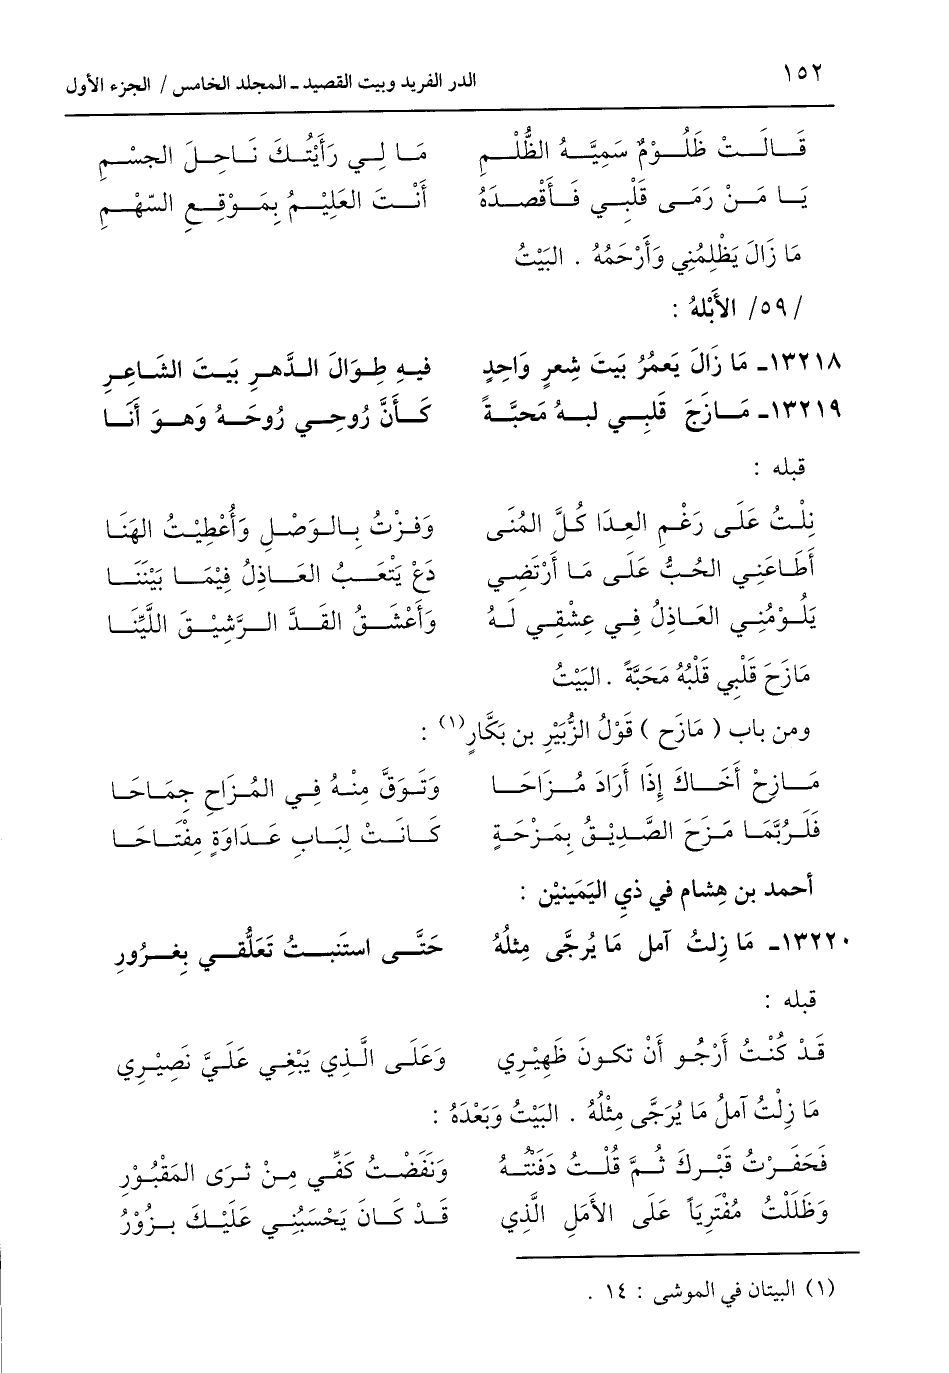 ١٥٢ الدر الفريد وبيت القصيد ـ المجلد الخامس / الجزء الأول
قَالَتْ ظَلُوْمُ سَمِيَّةُ الظُّلْمِ مَا لِي رَأَيْتُكَ نَاحِلَ الجِسْمِ
يَا مَنْ رَمَى قَلْبِي فَأَقْصَدَهُ أَنْتَ العَلِيْمُ بِمَوْقِعِ السَّهْمِ
مَا زَالَ يَظْلِمُنِي وَأَرْحَمُهُ . البَيْتُ
/٥٩/ الأَبْلَهُ :
١٣٢١٨ـ مَا زَالَ يَعمُرُ بَيتَ شِعرٍ وَاحِدٍ فيهِ طِوَالَ الدَّهرِ بَيتَ الشَاعِرِ
١٣٢١٩ـ مَازَجَ قَلبِي لبهُ مَحبَّةً كَأَنَّ رُوحِي رُوحَهُ وَهوَ أَنَا
قبله :
نِلْتُ عَلَى رَغْمِ العِدَا كُلَّ المُنَى وَفزْتُ بِالوَصْلِ وَأُعْطِيْتُ الهَنَا
أَطَاعَنِي الحُبُّ عَلَى مَا أَرْتَضِي دَعْ يَتْعَبُ العَاذِلُ فِيْمَا بَيْنَنَا
يَلُوْمُنِي العَاذِلُ فِي عِشْقِي لَهُ وَأَعْشَقُ القَدَّ الرَّشِيْقَ اللَّيِّنَا
مَازَجَ قَلْبِي قَلْبُهُ مَحَبَّةً . البَيْتُ
ومن باب ( مَازَحِ ) قَوْلُ الزُّبَيْرِ بن بَكَّارٍ(١) :
مَازِحْ أَخَاكَ إِذَا أَرَادَ مُزَاحَا وَتَوَقَّ مِنْهُ فِي المُزَاحِ جِمَاحَا
فَلَرُبَّمَا مَزَحَ الصَّدِيْقُ بِمَزْحَةٍ كَانَتْ لِبَابِ عَدَاوَةٍ مِفْتَاحَا
أحمد بن هشام في ذي اليَمِيْنَيْنِ :
١٣٢٢٠ـ مَا زِلتُ آمل مَا يُرجَّى مِثلُهُ حَتَّى استَنبتُ تَعَلُّقي بغرُورِ
قبله :
قَدْ كُنْتُ أَرْجُو أَنْ تكونَ ظَهِيْرِي وَعَلَى الَّذِي يَبْغِي عَلَيَّ نَصِيْرِي
مَا زِلْتُ آملُ مَا يُرَجَّى مِثْلُهُ . البَيْتُ وَبَعْدَهُ :
فَحَفَرْتُ قَبْرَكَ ثُمَّ قُلْتُ دَفَنْتُهُ وَنَفَضْتُ كَفِّي مِنْ ثَرَى المَقْبُوْرِ
وَظَلَلْتُ مُفْتَرِيَاً عَلَى الأَمَلِ الَّذِي قَدْ كَانَ يَحْسَبُنِي عَلَيْكَ بِزُوْرُ
(١) البيتان في الموشى : ١٤ .